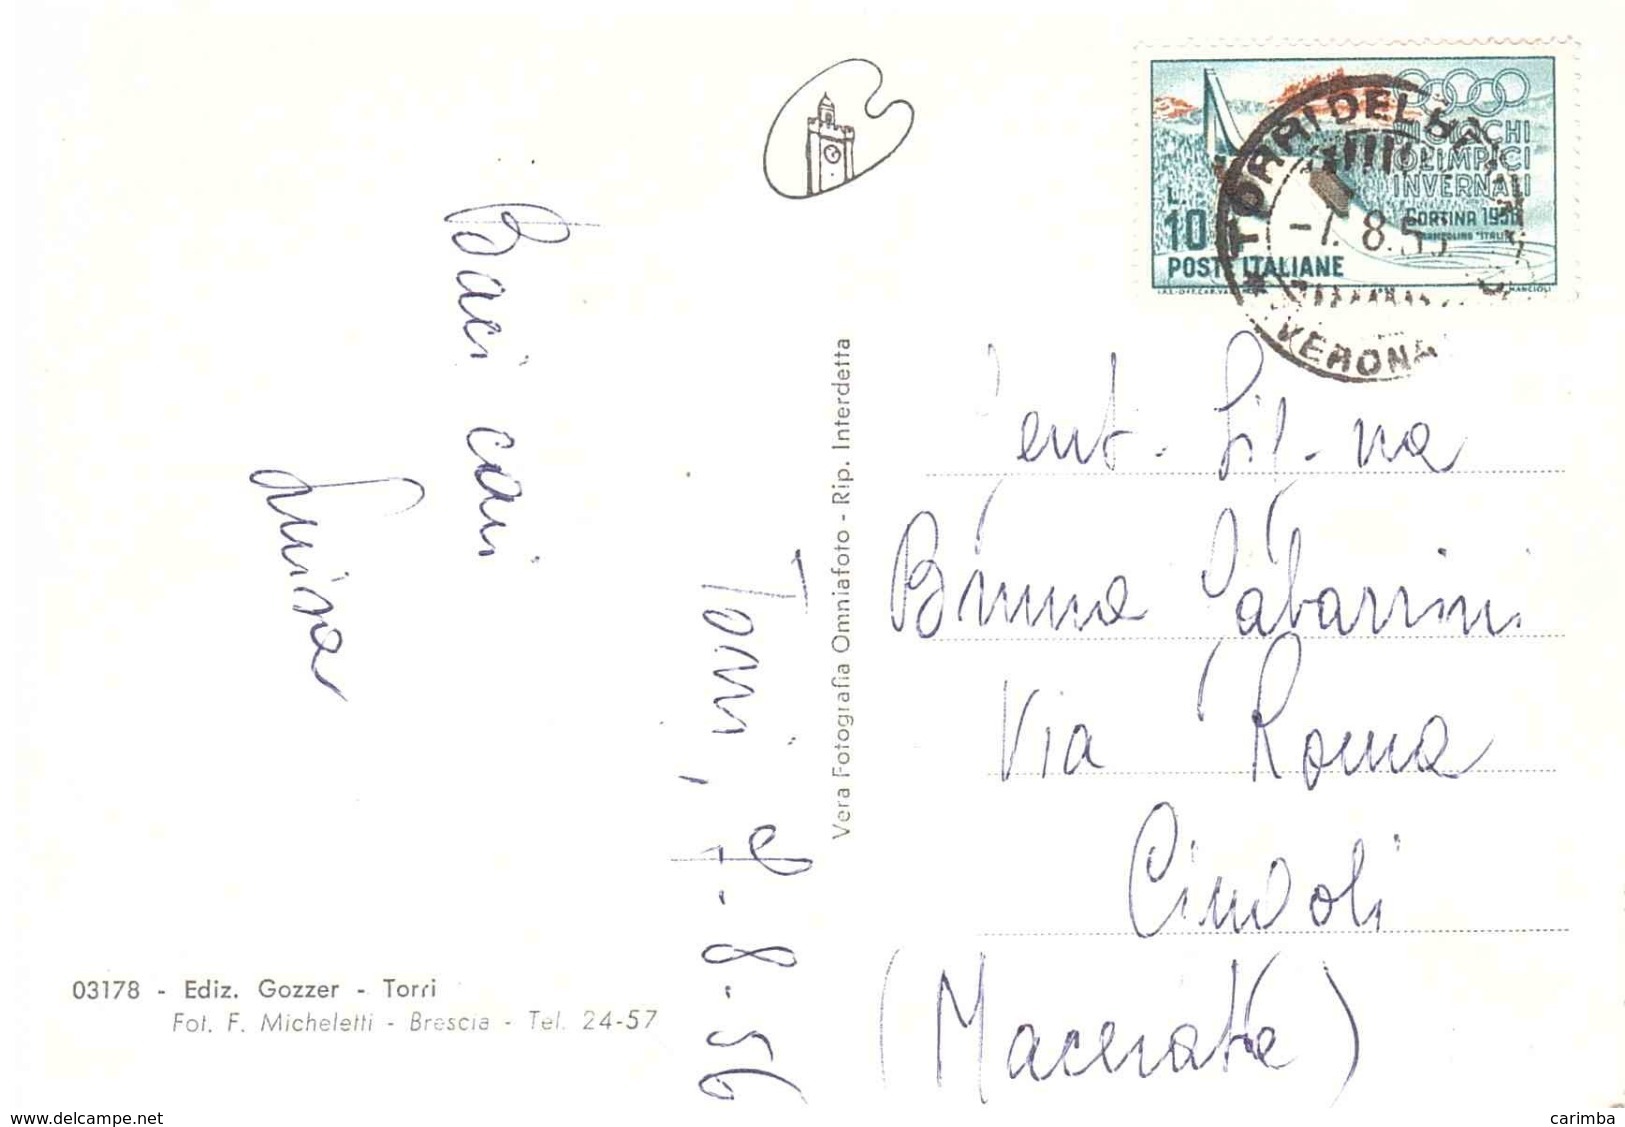 Baci cari
Luisa
Torri, 7-8-56
03178 - Ediz. Gozzer - Torri
Fot. F. Micheletti - Brescia - Tel. 24-57
Vera Fotografia Omniafoto - Rip. Interdetta
VII GIOCHI
OLIMPICI
INVERNALI
CORTINA 1956
TRAMPOLINO "ITALIA"
L.
10
POSTE ITALIANE
MANCIOLI
TORRI DEL BENACO
-7. 8. 56
VERONA
Gent. Sig.na
Bruna Tabarrini
Via Roma
Cingoli
(Macerata)
www.delcampe.net
carimba